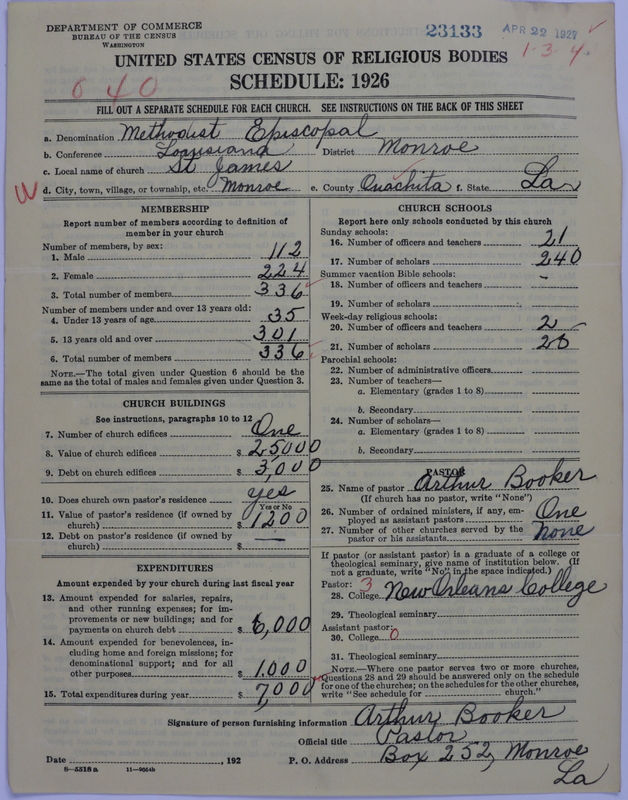 DEPARTMENT OF COMMERCE
BUREAU OF THE CENSUS
WASHINGTON
23133
APR 22 1927
1-3-4.
UNITED STATES CENSUS OF RELIGIOUS BODIES
SCHEDULE: 1926
0 40
FILL OUT A SEPARATE SCHEDULE FOR EACH CHURCH. SEE INSTRUCTIONS ON THE BACK OF THIS SHEET
a. Denomination Methodist Episcopal
b. Conference Louisiana District Monroe
c. Local name of church St James
W
d. City, town, village, or township, etc. Monroe e. County Ouachita f. State La
MEMBERSHIP
Report number of members according to definition of member in your church
Number of members, by sex:
1. Male 112
2. Female 224
3. Total number of members 336
Number of members under and over 13 years old:
4. Under 13 years of age 35
5. 13 years old and over 301
6. Total number of members 336
NOTE.—The total given under Question 6 should be the
same as the total of males and females given under Question 3.
CHURCH BUILDINGS
See instructions, paragraphs 10 to 12
7. Number of church edifices One
8. Value of church edifices $ 25000
9. Debt on church edifices $ 3,000
10. Does church own pastor's residence yes
Yes or No
11. Value of pastor's residence (if owned by
church) $ 1200
12. Debt on pastor's residence (if owned by
church) $ —
EXPENDITURES
Amount expended by church during last fiscal year
13. Amount expended for salaries, repairs,
and other running expenses; for im-
provements or new buildings; and for
payments on church debt $ 6,000
14. Amount expended for benevolences, in-
cluding home and foreign missions; for
denominational support; and for all
other purposes $ 1000
15. Total expenditures during year $ 7,000
CHURCH SCHOOLS
Report here only schools conducted by this church
Sunday schools:
16. Number of officers and teachers 21
17. Number of scholars 240
Summer vacation Bible schools:
18. Number of officers and teachers -
19. Number of scholars
Week-day religious schools:
20. Number of officers and teachers 2
21. Number of scholars
Parochial schools:
22. Number of administrative officers
23. Number of teachers—
a. Elementary (grades 1 to 8)
b. Secondary
24. Number of scholars—
a. Elementary (grades 1 to 8)
b. Secondary
PASTOR
25. Name of pastor Arthur Booker
(If church has no pastor, write "None")
26. Number of ordained ministers, if any, em-
ployed as assistant pastors One
27. Number of other churches served by the
pastor or his assistants None
If pastor (or assistant pastor) is a graduate of a college or
theological seminary, give name of institution below. (If
not a graduate, write "No" in the space indicated.)
Pastor: 3
28. College New Orleans College
29. Theological seminary
Assistant pastor:
30. College 0
31. Theological seminary
NOTE.—Where one pastor serves two or more churches,
Questions 28 and 29 should be answered only on the schedule
for one of the churches; on the schedules for the other churches,
write "See schedule for church."
Signature of person furnishing information Arthur Booker
Official title Pastor
Date , 192 P. O. Address Box 252, Monroe
La
6—5518a 11—9054b